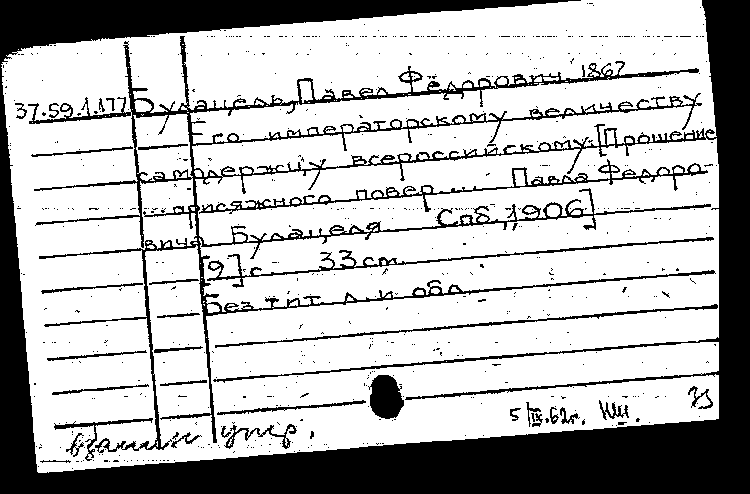 37.59.1.177 Булацель, Павел Фёдорович. 1867
Его императорскому величеству
самодержцу всероссийскому. [Прошение
... присяжного повер. ... Павла Федоро-
вича Булацеля. Спб., 1906]
[9] с. 33 см.
Без тит. л. и обл.
5/IX.62г.
взамен утер.